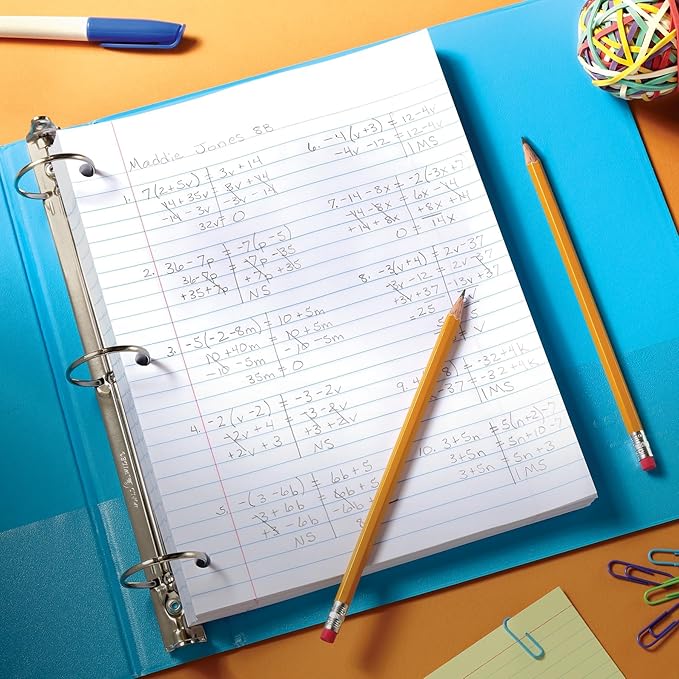 Maddie Jones 8B
1. 7(2+5v) = 3v+14
14+35v = 8v+14
-14-3v -3v-14
32v = 0
2. 36-7p = -7(p-5)
36-7p = -7p-35
+35+7p +7p+35
NS
3. -5(-2-8m) = 10+5m
10+40m = 10+5m
-10-5m -10-5m
35m = 0
4. -2(v-2) = -3-2v
-2v+4 = -3-2v
+2v+3 +3+2v
NS
5. -(3-6b) = 6b+5
-3+6b = 6b+5
+3-6b -6b+
NS 8
6. -4(v+3) = 12-4v
-4v-12 = 12-4v
IMS
7. -14-8x = -2(-3x+7
-14-8x = 6x-14
+14+8x +8x+14
0 = 14x
8. -3(v+4) = 2v-37
-3v-12 = 2v-37
+3v+37 -13v+37
=25
v
9. 8) = -32+4k
-37 = -32+4k
IMS
10. 3+5n = 5(n+2)-7
3+5n = 5n+10-7
3+5n 5n+3
IMS